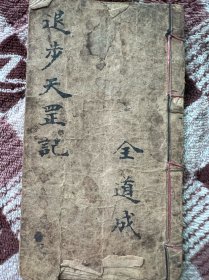 退步天罡記
全道成